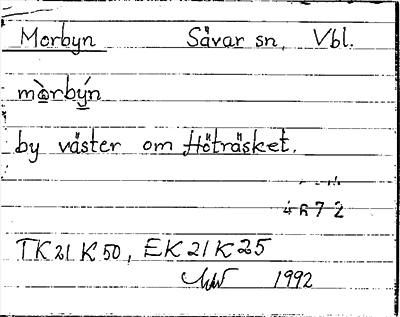 Morbyn Sävar sn, Vbl.
mòrbýn
by väster om Hötträsket.
4672
TK 21 K 50, EK 21 K 25
1992